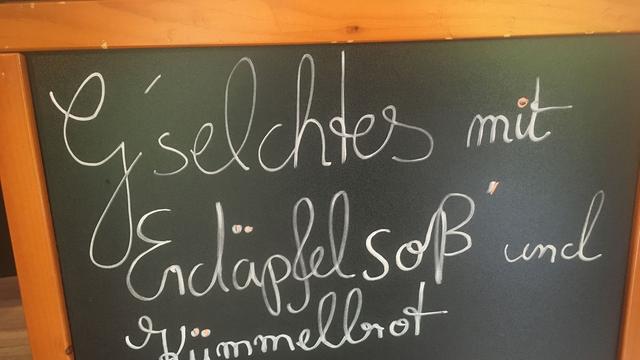 G'selchtes mit
Erdäpfelsoß" und
Kümmelbrot